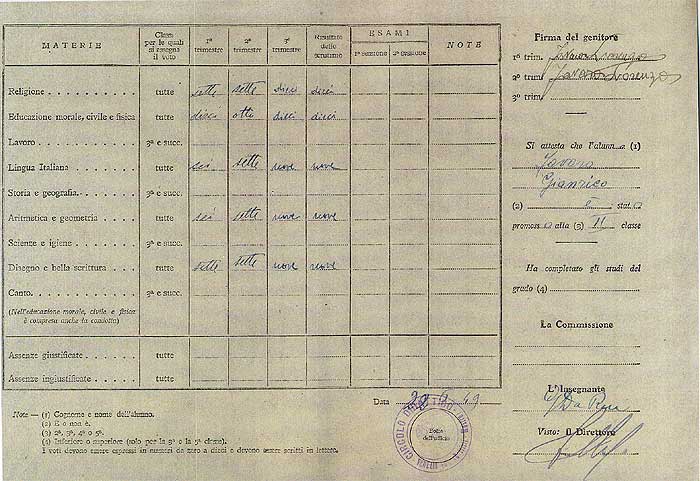 MATERIE
Classi per le quali si assegna il voto
1º trimestre
2º trimestre
3º trimestre
Risultato dello scrutinio
ESAMI
1ª sessione
2ª sessione
NOTE
Religione tutte sette sette dieci dieci
Educazione morale, civile e fisica tutte dieci otto dieci dieci
Lavoro 3ª e succ.
Lingua Italiana tutte sei sette nove nove
Storia e geografia 3ª e succ.
Aritmetica e geometria tutte sei sette nove nove
Scienze e igiene 3ª e succ.
Disegno e bella scrittura tutte sette sette nove nove
Canto 3ª e succ.
(Nell'educazione morale, civile e fisica
è compresa anche la condotta)
Assenze giustificate tutte
Assenze ingiustificate tutte
Note — (1) Cognome e nome dell'alunno.
(2) È o non è.
(3) 2ª, 3ª, 4ª o 5ª.
(4) Inferiore o superiore (solo per la 3ª e la 5ª classe).
I voti devono essere espressi in numeri da zero a dieci e devono essere scritti in lettere.
Data
CIRCOLO
Bollo
dell'ufficio
Firma del genitore
1º trim. Lorenzo
2º trim. Lorenzo
3º trim.
Si attesta che l'alunno (1)
Gianrico
(2) è stato
promosso alla (3) II classe
Ha completato gli studi del
grado (4)
La Commissione
L'Insegnante
Visto: Il Direttore